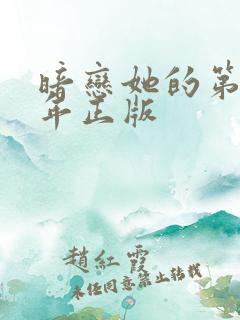 暗戀她的第
年正版
趙紅霞
未任同意禁止转载